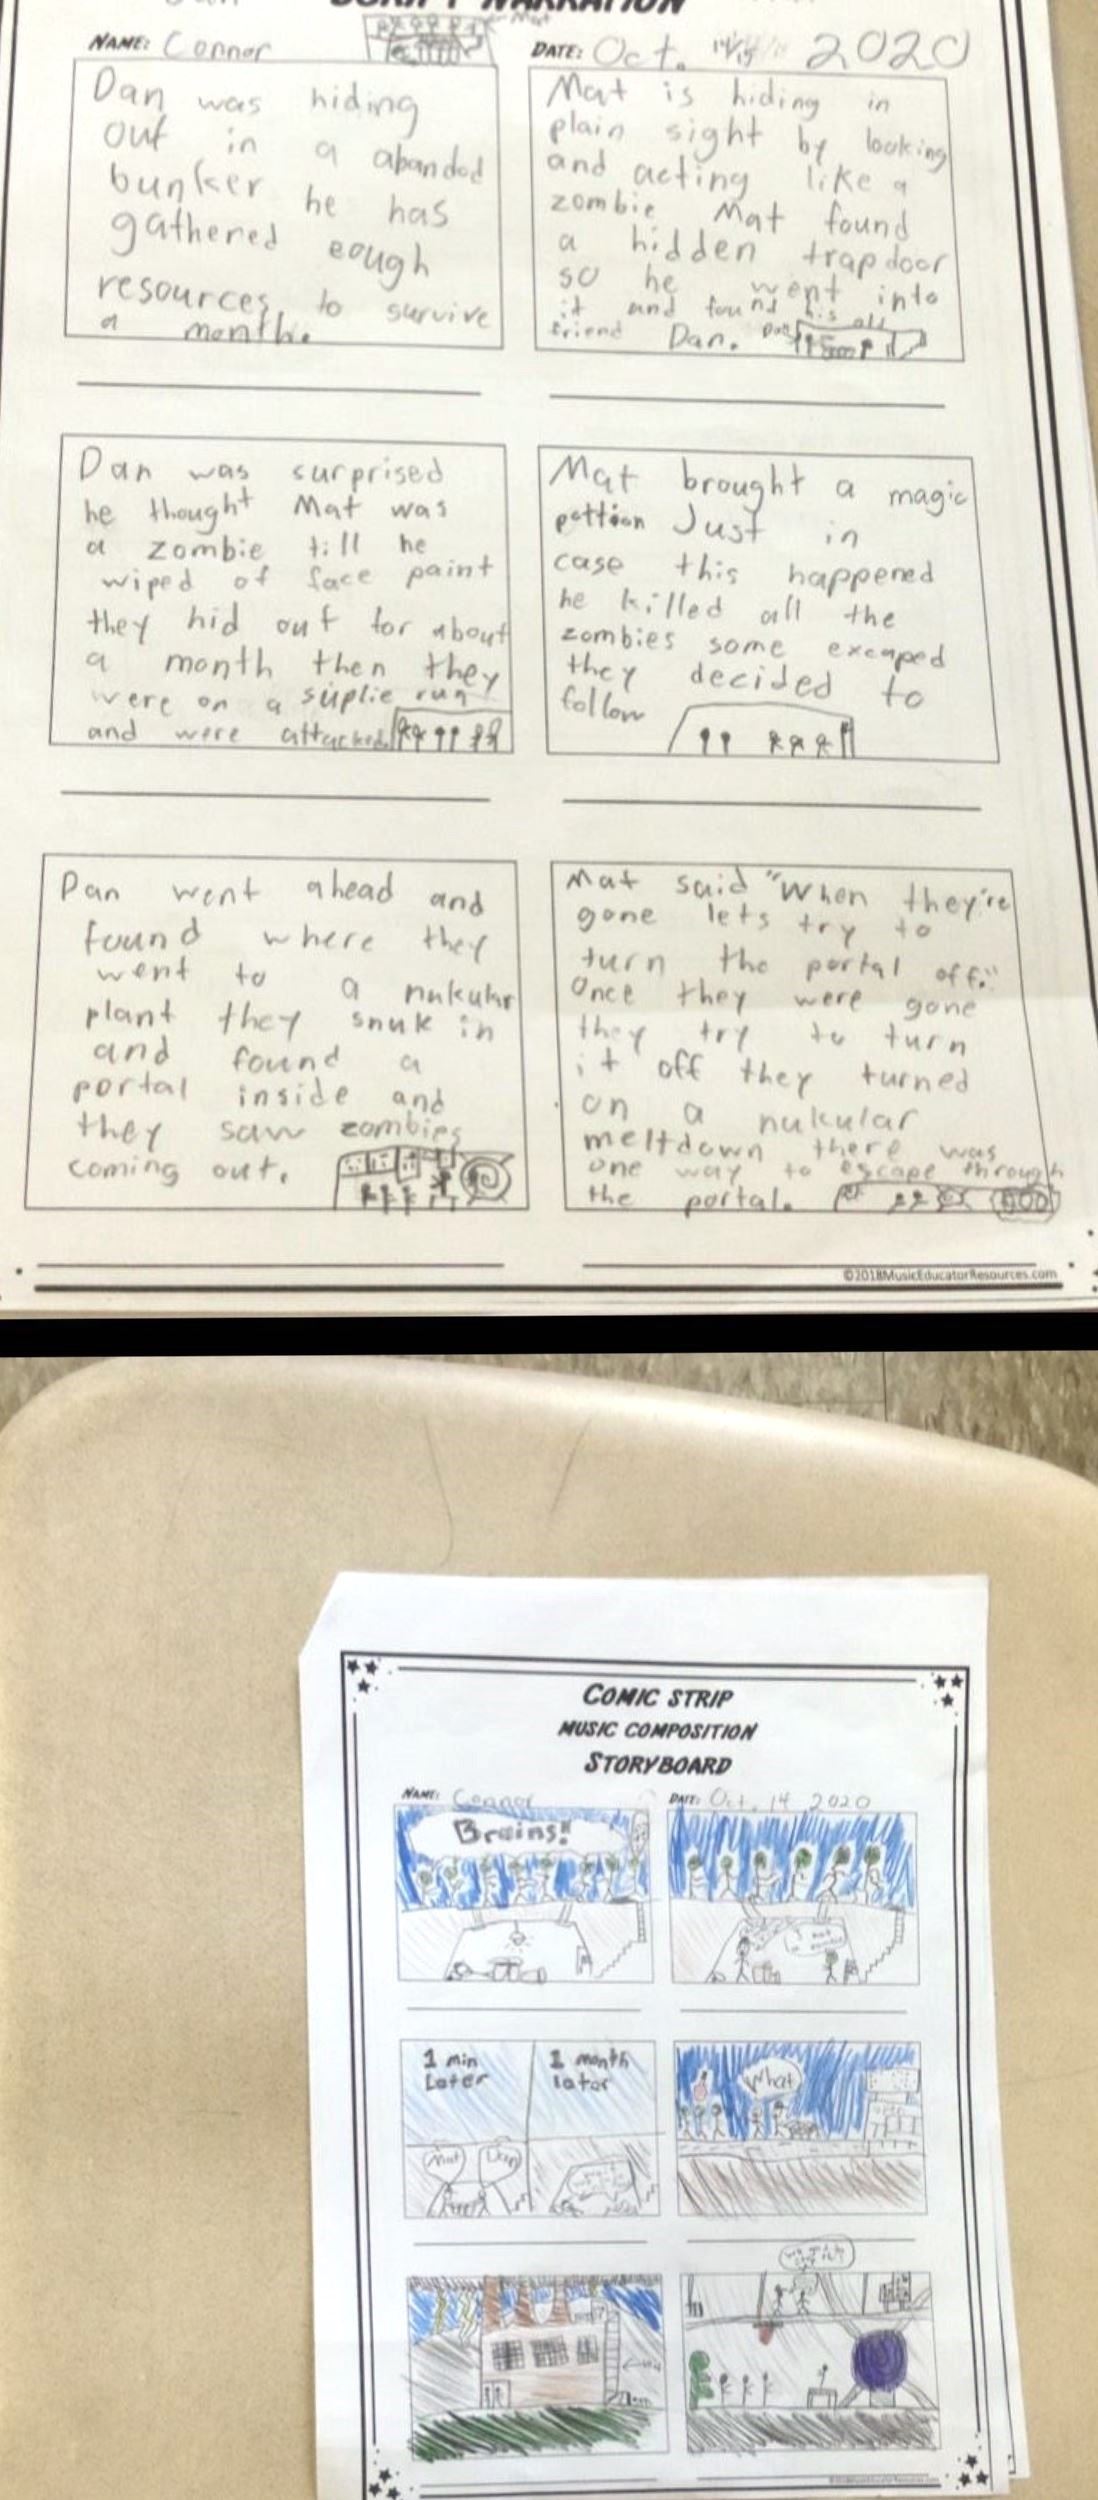 SCRIPT NARRATION
NAME: Connor
DATE: Oct. 14/15 2020
Dan was hiding
out in a abandod
bunker he has
gathered eough
resources to survive
a month.
Mat is hiding in
plain sight by looking
and acting like a
zombie Mat found
a hidden trapdoor
so he went into
it and found his old
friend Dan.
Dan was surprised
he thought Mat was
a zombie till he
wiped of face paint
they hid out for about
a month then they
were on a suplie run
and were attacked.
Mat brought a magic
pottion Just in
case this happened
he killed all the
zombies some excaped
they decided to
follow
Dan went ahead and
found where they
went to a nukular
plant they snuk in
and found a
portal inside and
they saw zombies
coming out.
Mat said "When they're
gone lets try to
turn the portal off."
Once they were gone
they try to turn
it off they turned
on a nukular
meltdown there was
one way to escape through
the portal.
©2018MusicEducatorResources.com
COMIC STRIP
MUSIC COMPOSITION
STORYBOARD
NAME: Connor
DATE: Oct. 14 2020
Brains!
1 min
Later
1 month
later
Mat
Dan
What